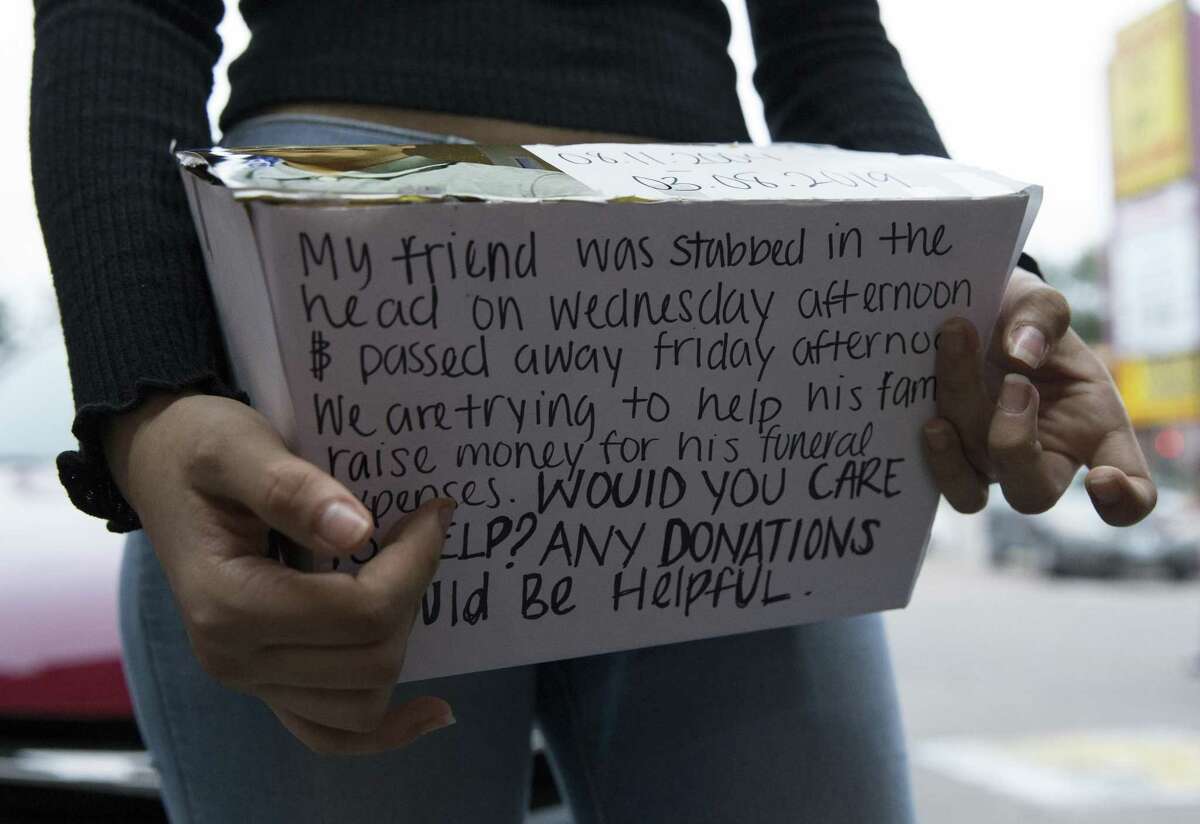 03.08.2019
My friend was stabbed in the
head on Wednesday afternoon
$ passed away friday afternoo
We are trying to help his fam
raise money for his funeral
xpenses. WOULD YOU CARE
ELP? ANY DONATIONS
uld Be HelpfUL.